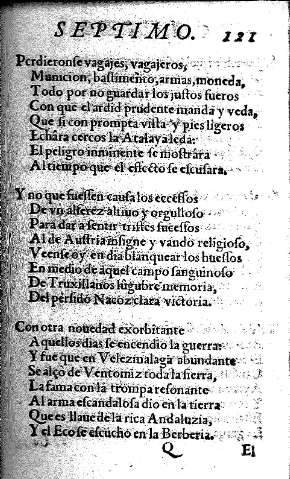 SEPTIMO. 121
Perdieronse vagajes, vagajeros,
Municion, bastimento, armas, moneda,
Todo por no guardar los justos fueros
Con que el ardid prudente manda y veda,
Que si con prompta vista y pies ligeros
Echara cercos la Atalaya leda:
El peligro inminente se mostrara
Al tiempo que el effecto se escusara.
Y no que fuessen causa los excessos
De vn alferez altiuo y orgulloso
Para dar a sentir tristes sucessos
Al de Austria insigne y vando religioso,
Veense oy en dia blanquear los huessos
En medio de aquel campo sanguinoso
De Truxillanos lugubre memoria,
Del perfido Nacoz clara victoria.
Con otra nouedad exorbitante
Aquellos dias se encendio la guerra:
Y fue que en Velezmalaga abundante
Se alço de Ventomiz toda la sierra,
La fama con la trompa resonante
Al arma escandalosa dio en la tierra
Que es llaue de la rica Andaluzia,
Y el Eco se escucho en la Berberia.
Q El